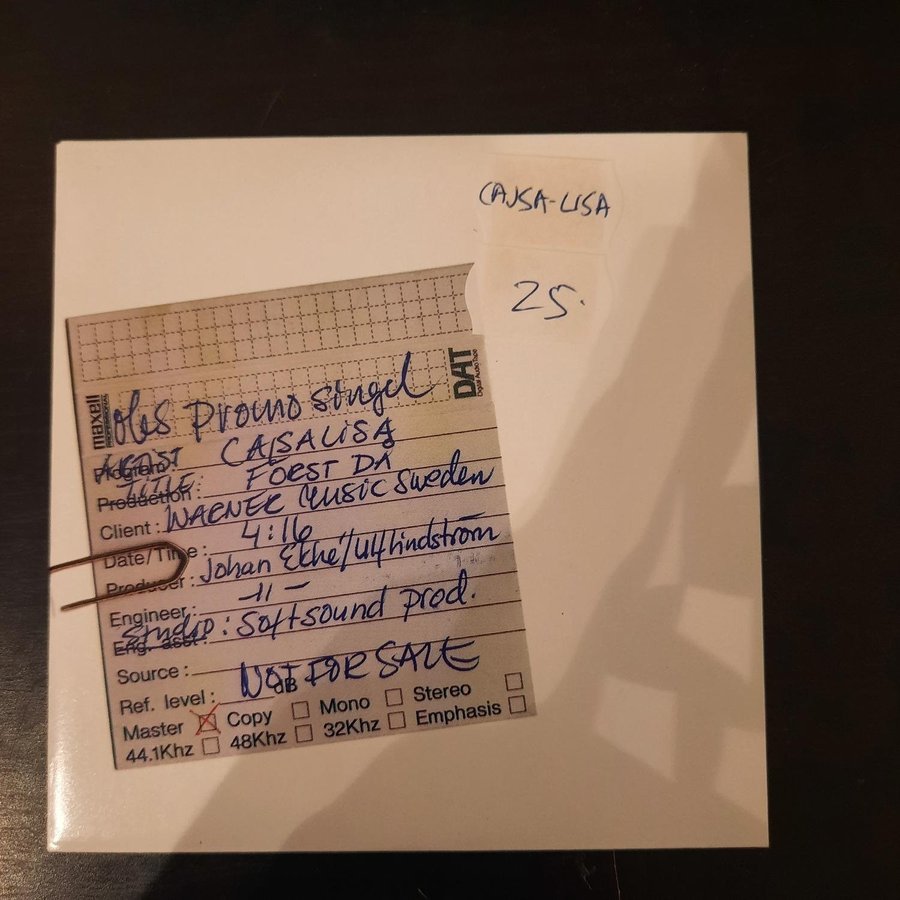 CAJSA-LISA
25.
DAT
maxell
Promo singel
ARTIST CAJSALISA
Program:
TITLE: FÖRST DÅ
Production:
Client: WARNER MUSIC Sweden
Date/Time: 4:16
Producer: Johan Ekhé/Ulf Lindström
Engineer: -11-
STUDIO: Softsound prod.
Eng. asst:
Source:
NOT FOR SALE
Ref. level: dB
Master Copy Mono Stereo
44.1Khz 48Khz 32Khz Emphasis